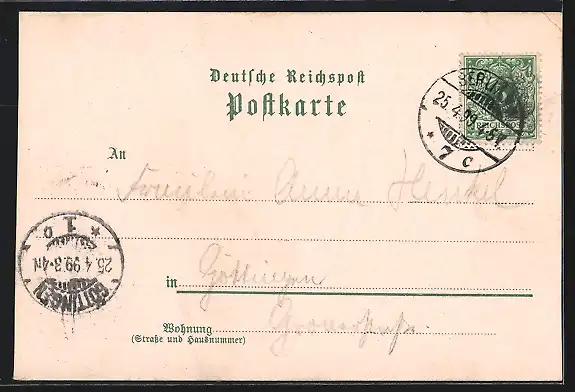 Deutsche Reichspost
Postkarte
REICHSPOST
25.4.99.
7 c
An
Fräulein Anna Henkel
1 c
25.4.99.3-4N
GÖTTINGEN
in Göttingen
Wohnung
(Straße und Hausnummer)